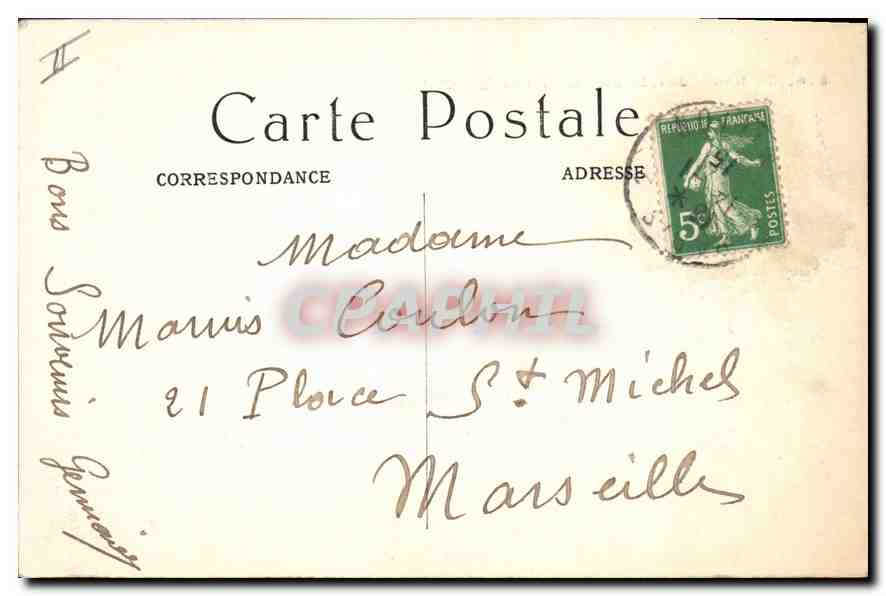 II
Carte Postale
CORRESPONDANCE
ADRESSE
REPUBLIQUE FRANCAISE
5c
POSTES
Madame
Marius Coulon
21 Place St Michel
Marseille
Bons Souvenirs
Germaine
CPAPHIL